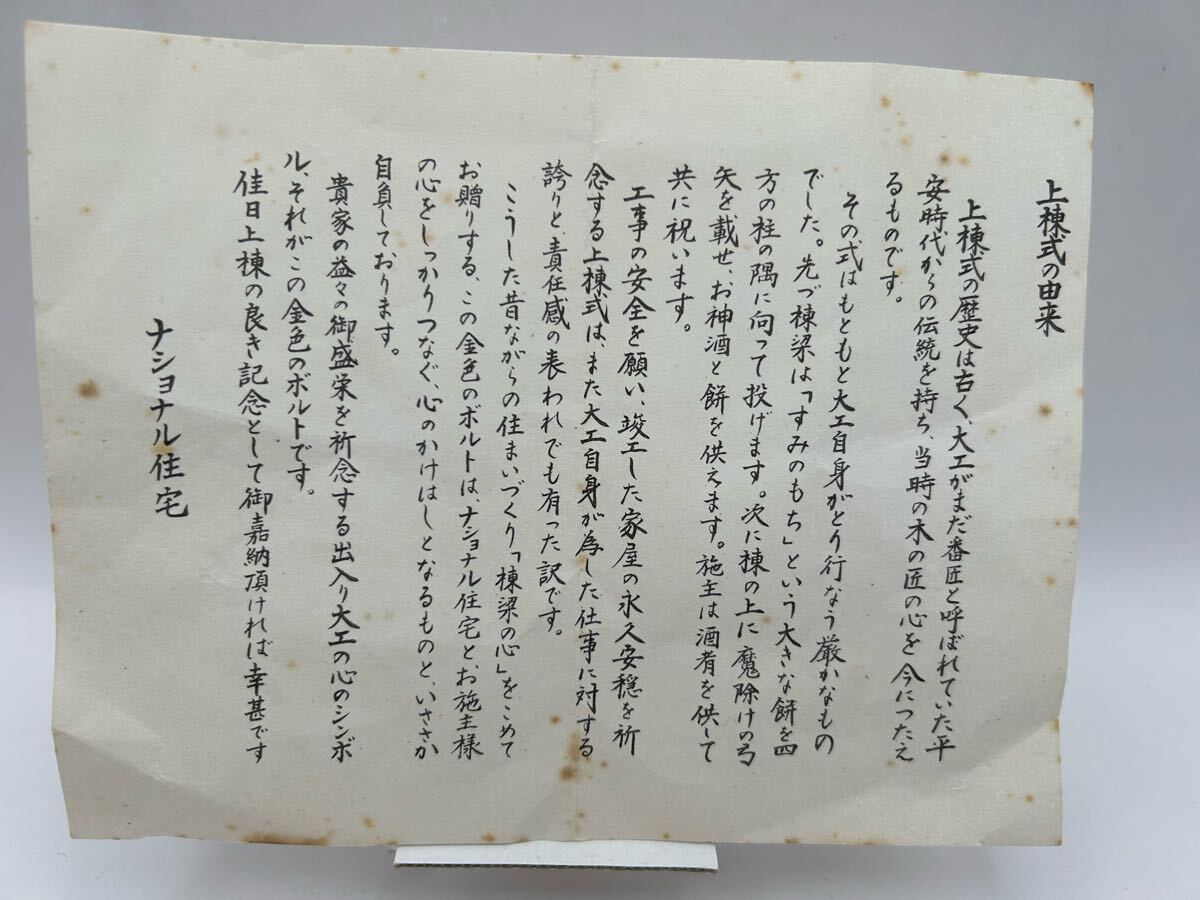 上棟式の由来
上棟式の歴史は古く、大工がまだ番匠と呼ばれていた平
安時代からの伝統を持ち、当時の木の匠の心を今につたえ
るものです。
その式はもともと大工自身がとり行なう厳かなもの
でした。先づ棟梁は「すみのもち」という大きな餅を四
方の柱の隅に向って投げます。次に棟の上に魔除けの弓
矢を載せ、お神酒と餅を供えます。施主は酒肴を供して
共に祝います。
工事の安全を願い、竣工した家屋の永久安穏を祈
念する上棟式は、また大工自身が為した仕事に対する
誇りと、責任感の表われでも有った訳です。
こうした昔ながらの住まいづくり「棟梁の心」をこめて
お贈りする、この金色のボルトは、ナショナル住宅とお施主様
の心をしっかりつなぐ、心のかけはしとなるものと、いささか
自負しております。
貴家の益々の御盛栄を祈念する出入り大工の心のシンボ
ル、それがこの金色のボルトです。
佳日上棟の良き記念として御嘉納頂ければ幸甚です
ナショナル住宅